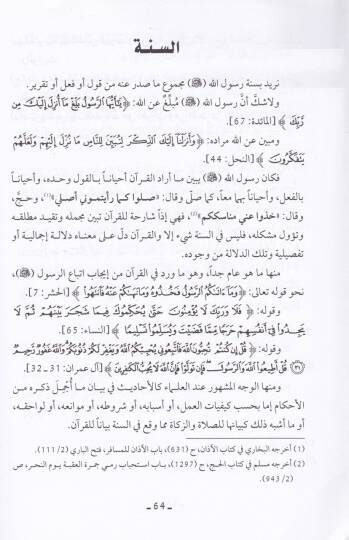 السنة
نريد بسنة رسول الله (ﷺ) مجموع ما صدر عنه من قول أو فعل أو تقرير.
ولاشك أن رسول الله (ﷺ) مُبلّغ عن الله: ﴿يَتَأَيُّهَا ٱلرَّسُولُ بَلِّغْ مَآ أُنزِلَ إِلَيْكَ مِن
رَّبِّكَ﴾ [المائدة: 67].
ومبين عن الله مراده: ﴿وَأَنزَلْنَآ إِلَيْكَ ٱلذِّكْرَ لِتُبَيِّنَ لِلنَّاسِ مَا نُزِّلَ إِلَيْهِمْ وَلَعَلَّهُمْ
يَتَفَكَّرُونَ﴾ [النحل: 44].
فكان رسول الله (ﷺ) يبين مـا أراد القرآن أحيانـاً بـالقول وحـده، وأحيانـاً
بالفعل، وأحياناً بهما معاً، كما صلّى وقال: «صلـوا كمـا رأيتمـوني أصلي»(1)، وحـجّ،
وقال: «خذوا عني مناسككم»(2)، فهي إذاً شارحة للقرآن تبين مجمله وتقيـد مطلقـه
وتؤول مشكله، فليس في السنة شيء إلا والقـرآن دلّ على معنـاه دلالـة إجماليـة أو
تفصيلية وتلك الدلالة من وجوه.
منها ما هو عام جداً، وهو ما ورد في القرآن من إيجاب اتباع الرسول (ﷺ)،
نحو قوله تعالى: ﴿وَمَآ ءَاتَىٰكُمُ ٱلرَّسُولُ فَخُذُوهُ وَمَا نَهَىٰكُمْ عَنْهُ فَٱنتَهُوا۟﴾ [الحشر: 7].
وقوله: ﴿فَلَا وَرَبِّكَ لَا يُؤْمِنُونَ حَتَّىٰ يُحَكِّمُوكَ فِيمَا شَجَرَ بَيْنَهُمْ ثُمَّ لَا
يَجِدُوا۟ فِىٓ أَنفُسِهِمْ حَرَجًا مِّمَّا قَضَيْتَ وَيُسَلِّمُوا۟ تَسْلِيمًا﴾ [النساء: 65].
وقوله: ﴿قُلْ إِن كُنتُمْ تُحِبُّونَ ٱللَّهَ فَٱتَّبِعُونِى يُحْبِبْكُمُ ٱللَّهُ وَيَغْفِرْ لَكُمْ ذُنُوبَكُمْ وَٱللَّهُ غَفُورٌ رَّحِيمٌ
(٣١) قُلْ أَطِيعُوا۟ ٱللَّهَ وَٱلرَّسُولَ فَإِن تَوَلَّوْا۟ فَإِنَّ ٱللَّهَ لَا يُحِبُّ ٱلْكَٰفِرِينَ﴾ [آل عمران: 31 ـ 32].
ومنها الوجه المشهور عند العلـماء كالأحاديـث في بيـان مـا أُجمِـلَ ذكـره مـن
الأحكام إما بحسب كيفيات العمل، أو أسبابه، أو شروطه، أو موانعه، أو لواحقـه،
أو ما أشبه ذلك كبيانها للصلاة والزكاة مما وقع في السنة بياناً للقرآن.
(1) أخرجه البخاري في كتاب الأذان، ح (631)، باب الأذان للمسافر، فتح الباري (2/111).
(2) أخرجه مسلم في كتاب الحج، ح (1297)، بـاب استحبـاب رمـي جمـرة العقبـة يـوم النحـر، ص
(2/943).
ـ 64 ـ